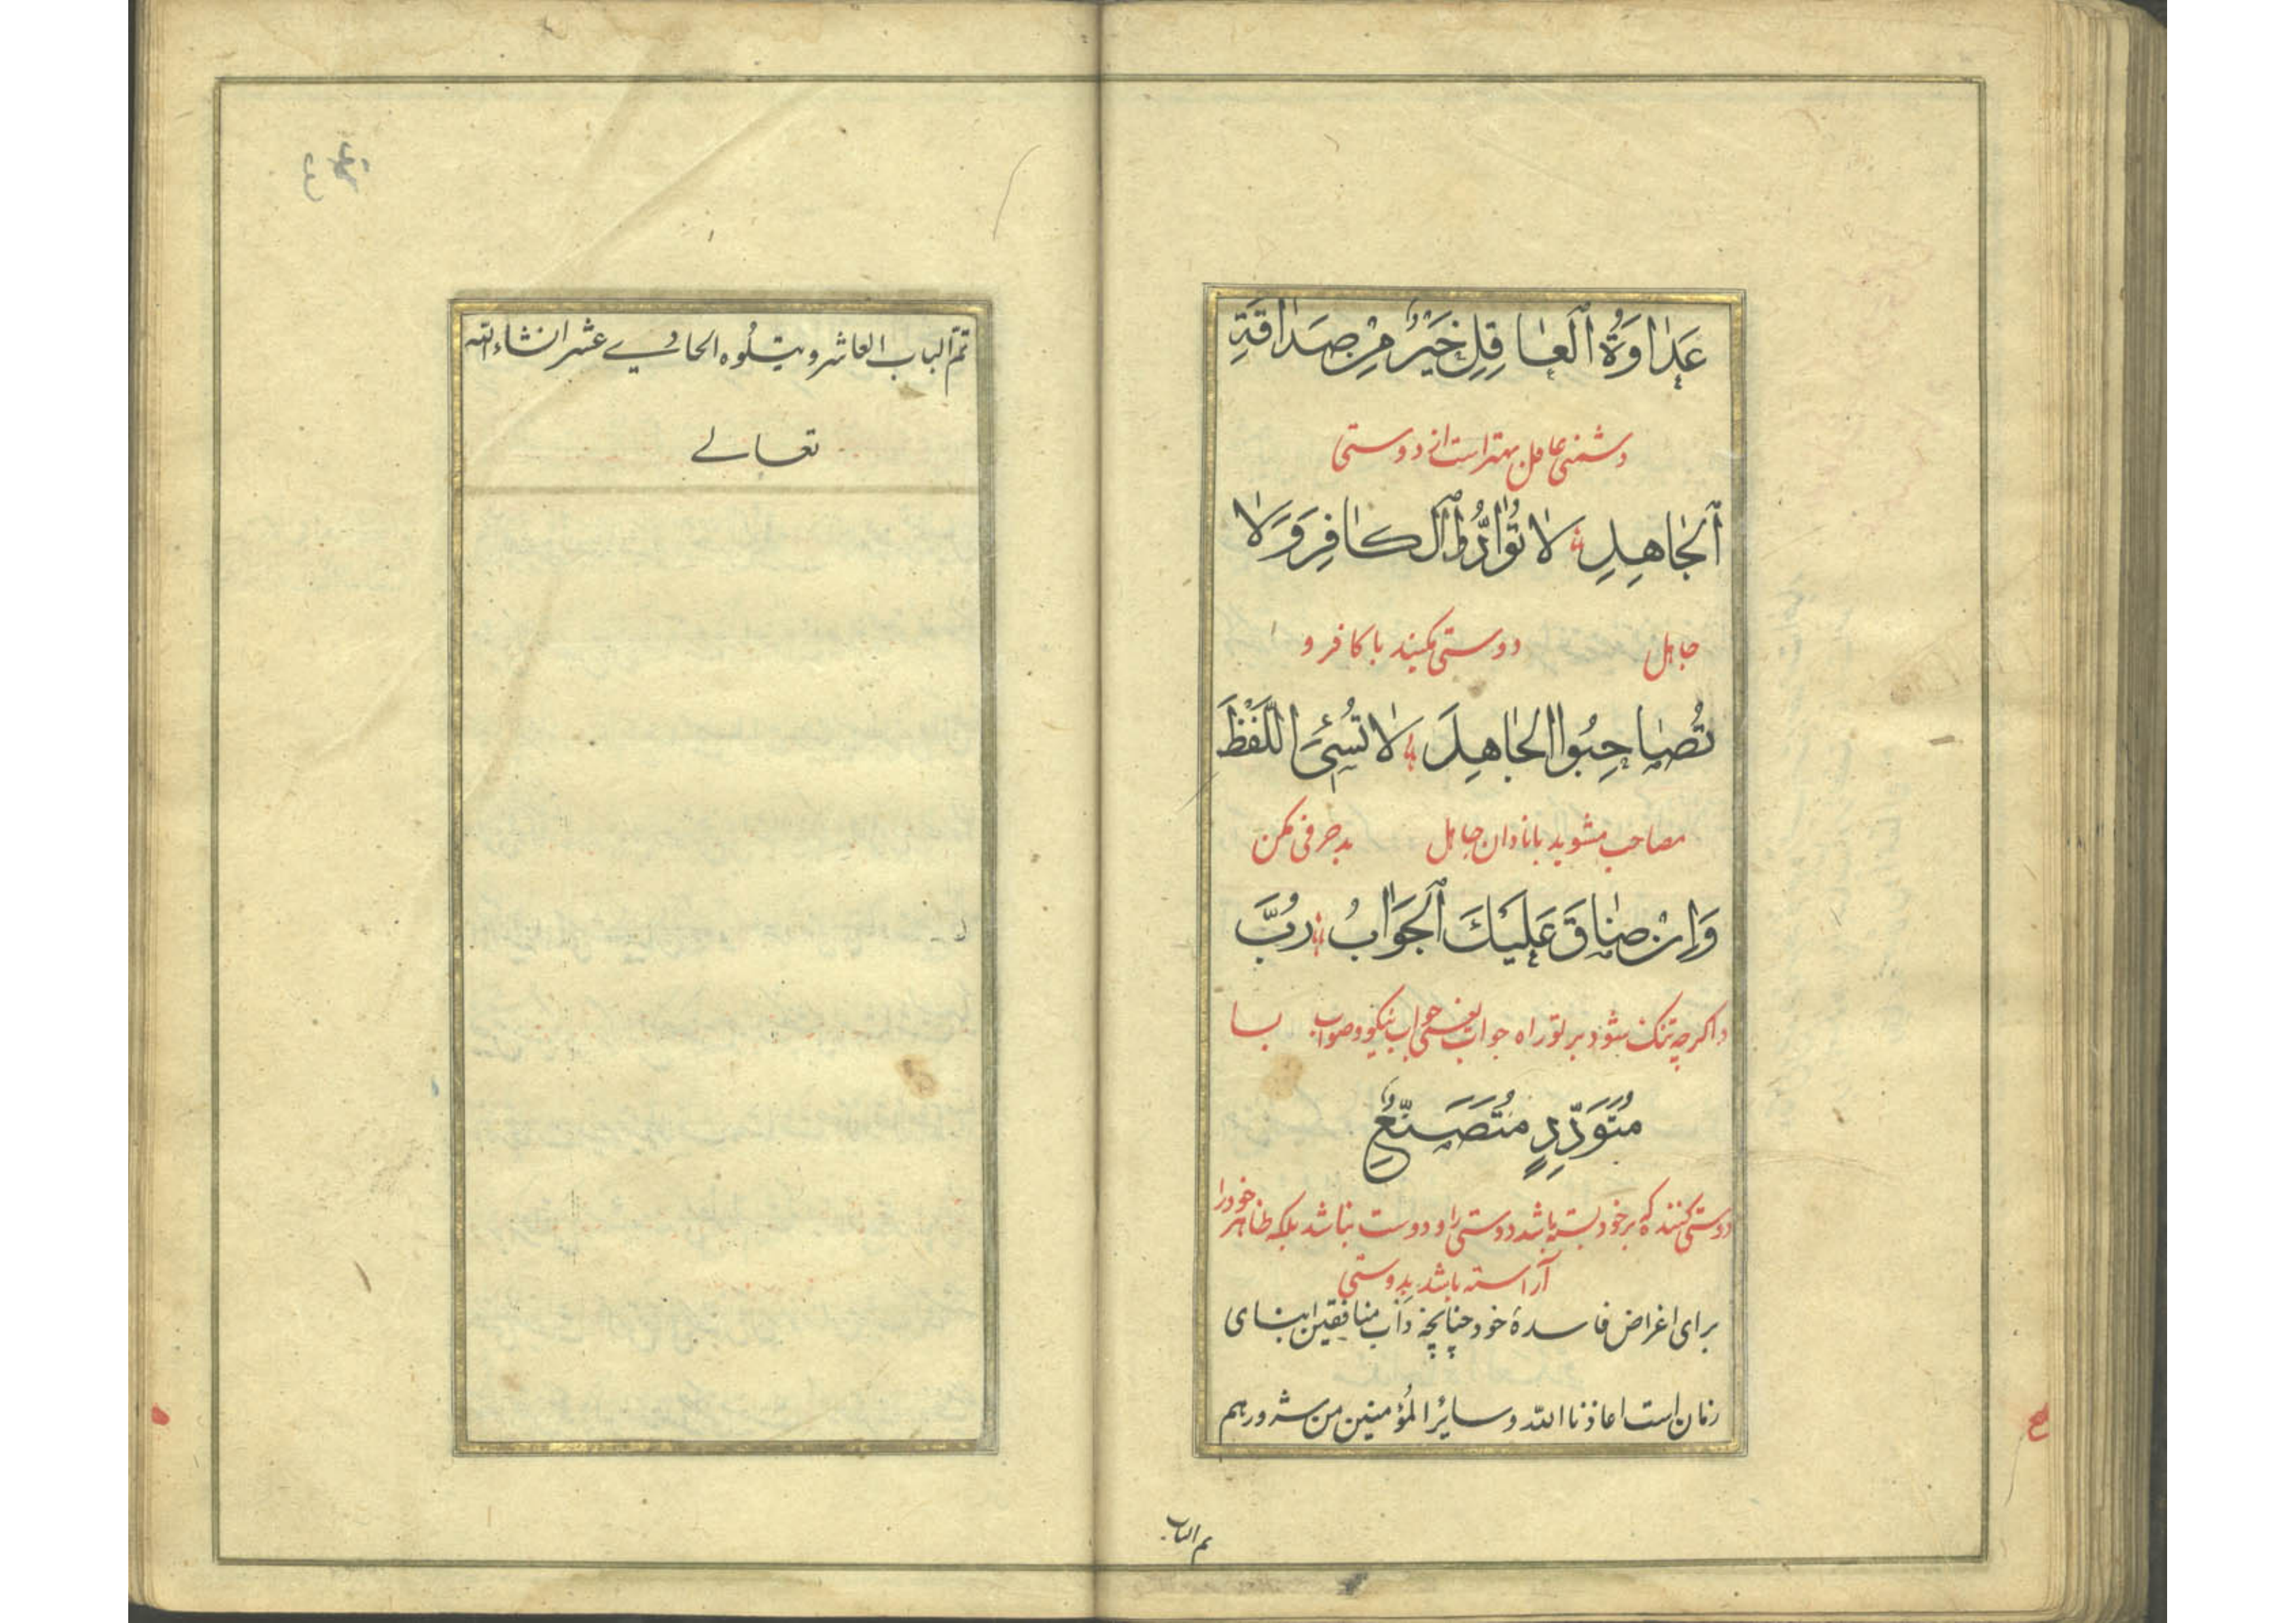 عَدَاوَةُ ٱلْعَاقِلِ خَيْرٌ مِنْ صَدَاقَةِ
دشمنی عاقل بهتر است از دوستی
ٱلْجَاهِلِ لَا تُوَادُّوا ٱلْكَافِرَ وَلَا
جاهل دوستی مکنید با کافر و
تُصَاحِبُوا الْجَاهِلَ لَا تُسِئِ اللَّفْظَ
مصاحب مشوید با نادان جاهل بد حرفی مکن
وَإِنْ ضَاقَ عَلَيْكَ ٱلْجَوَابُ رُبَّ
و اگرچه تنک شود بر تو راه جواب یعنی جواب نیکو و صواب بسا
مُتَوَدِّدٍ مُتَصَنِّعٍ
دوستی کننده که بر خود بسته باشد دوستی را و دوست نباشد بلکه ظاهر خود را
آراسته باشد بدوستی
برای اغراض فاسدهٔ خود چنانچه دأب منافقین ابنای
زمان است اعاذنا الله و سائر المؤمنین من شرورهم
تم الباب
تمّ الباب العاشر و یتلُوه الحادی عشر انشاءالله
تعالی